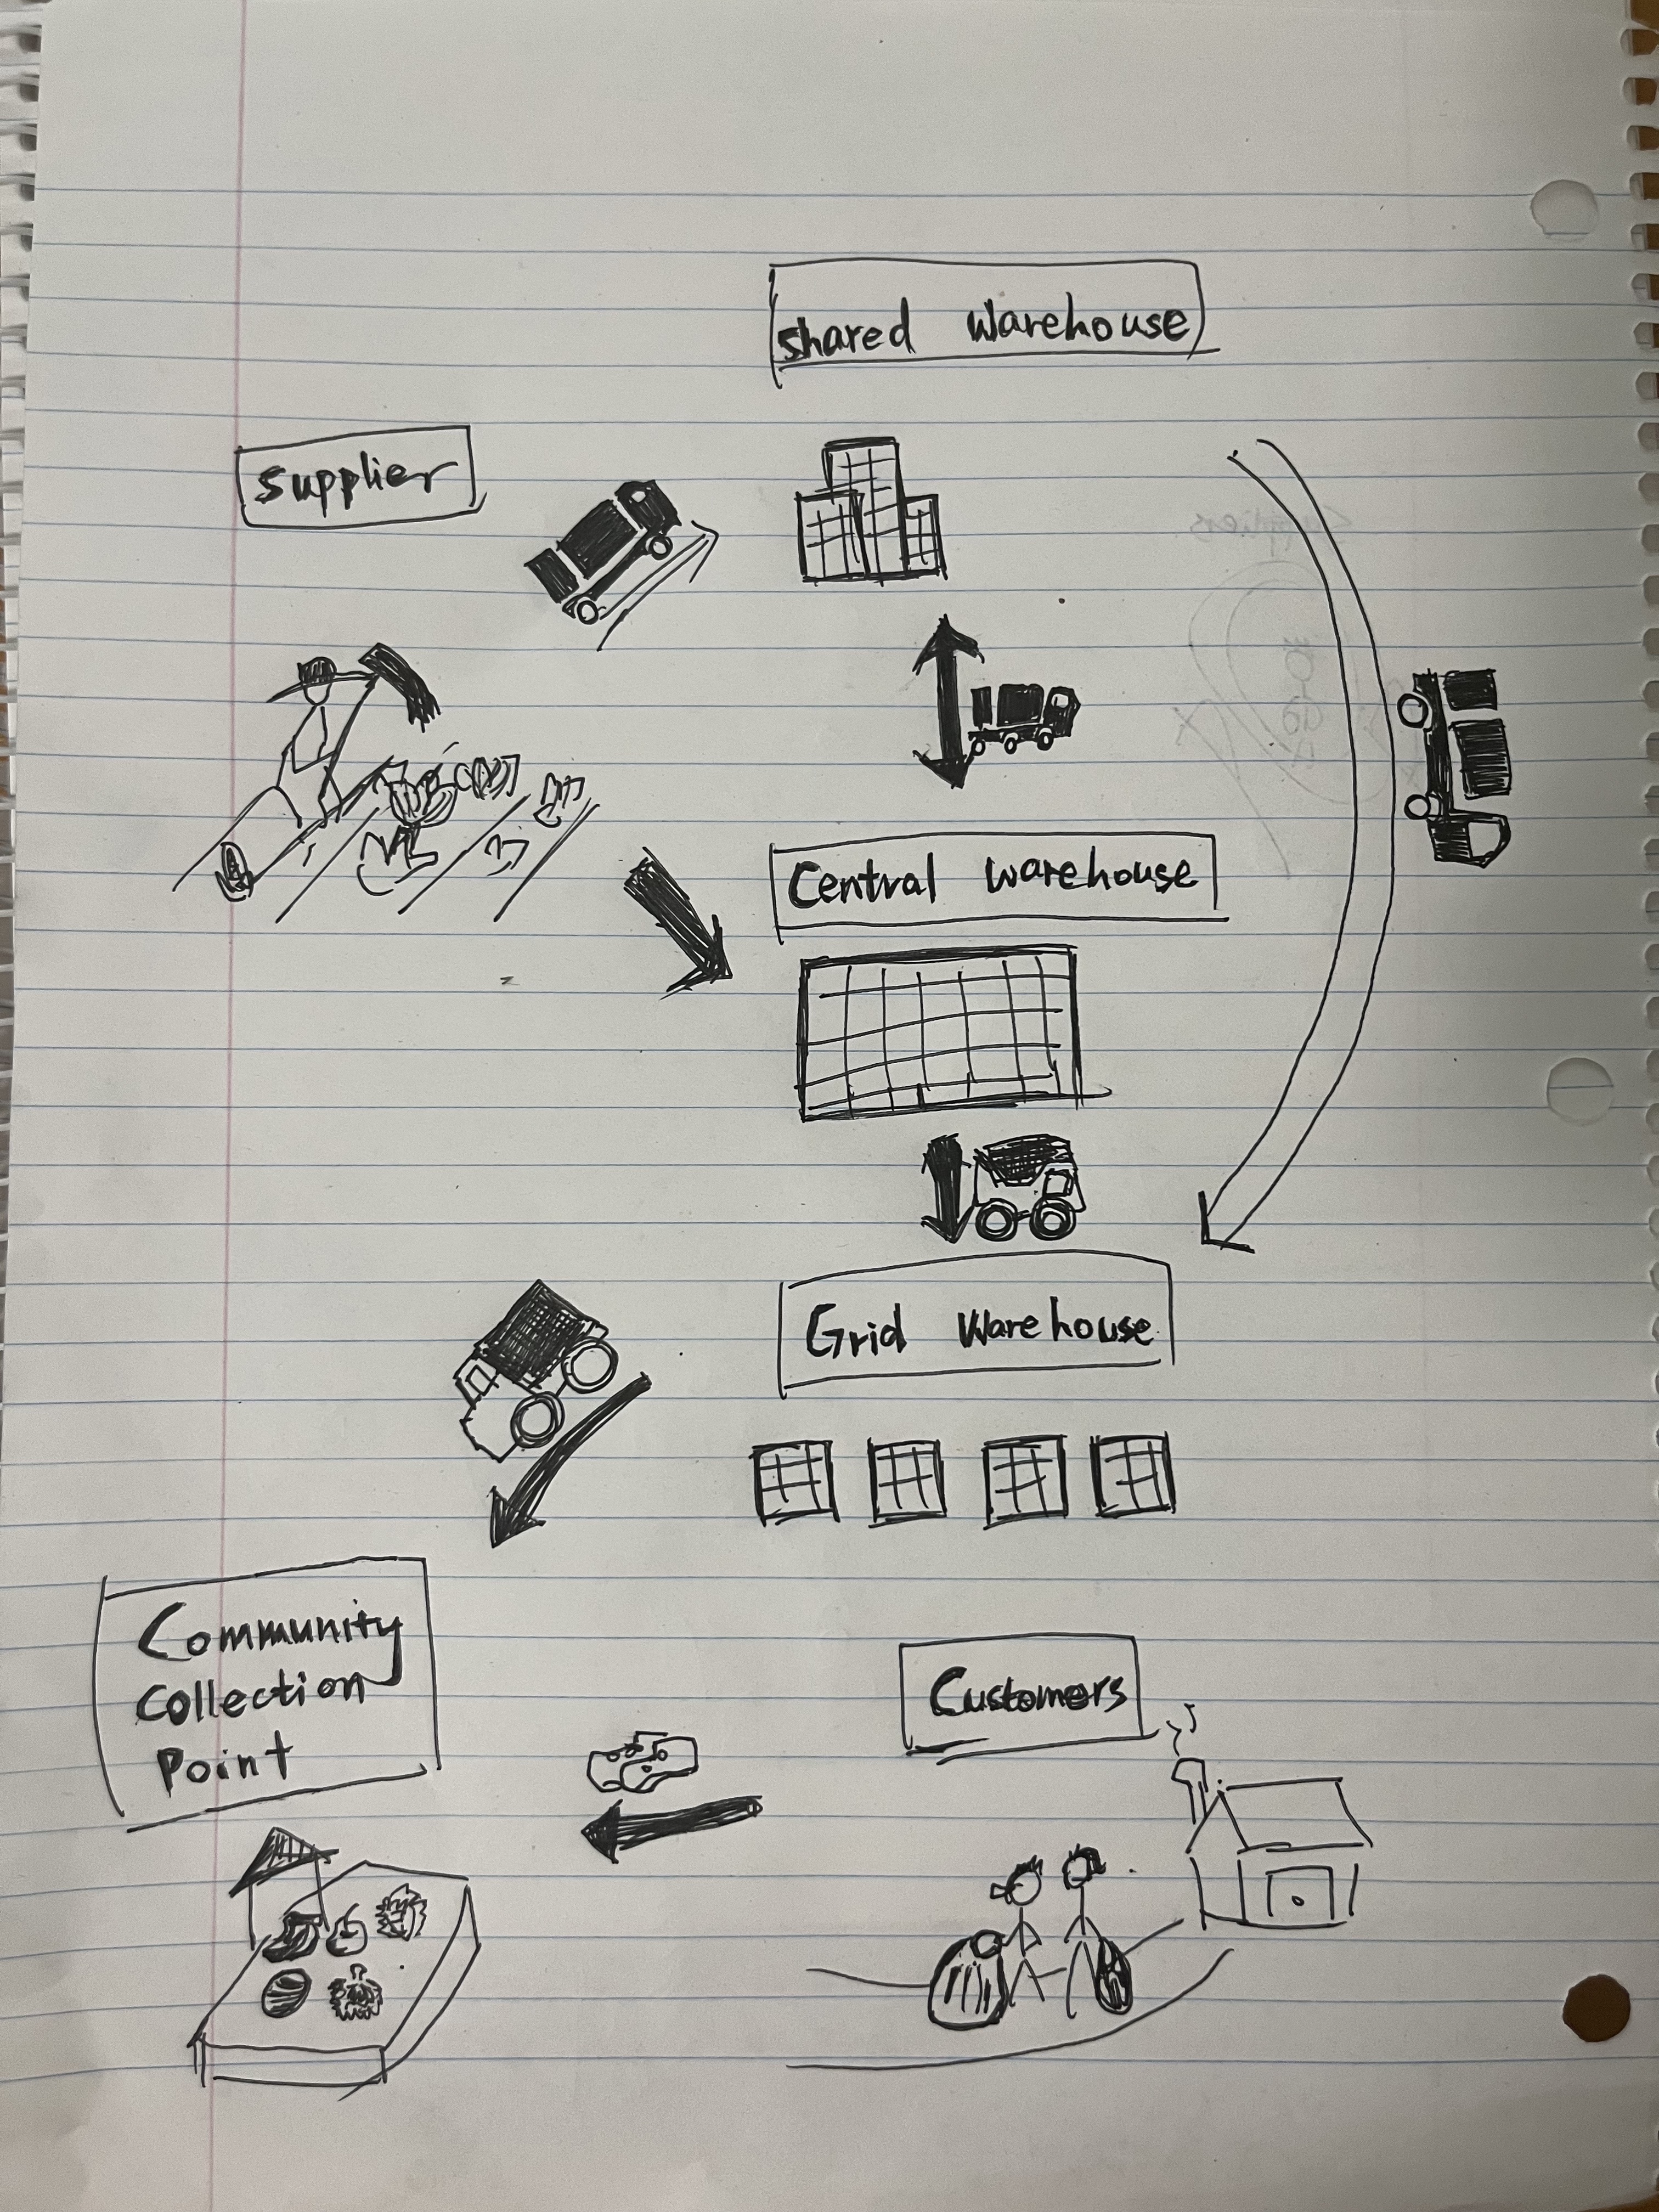 shared warehouse
supplier
Central warehouse
Grid Warehouse
Community
Collection
Point
Customers